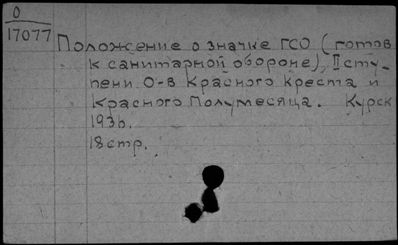 О
17077
Положение о значке ГСО (готов
к санитарной обороне), II сту-
пени О-в Красного Креста и
Красного Полумесяца. Курск
1936.
18 стр.